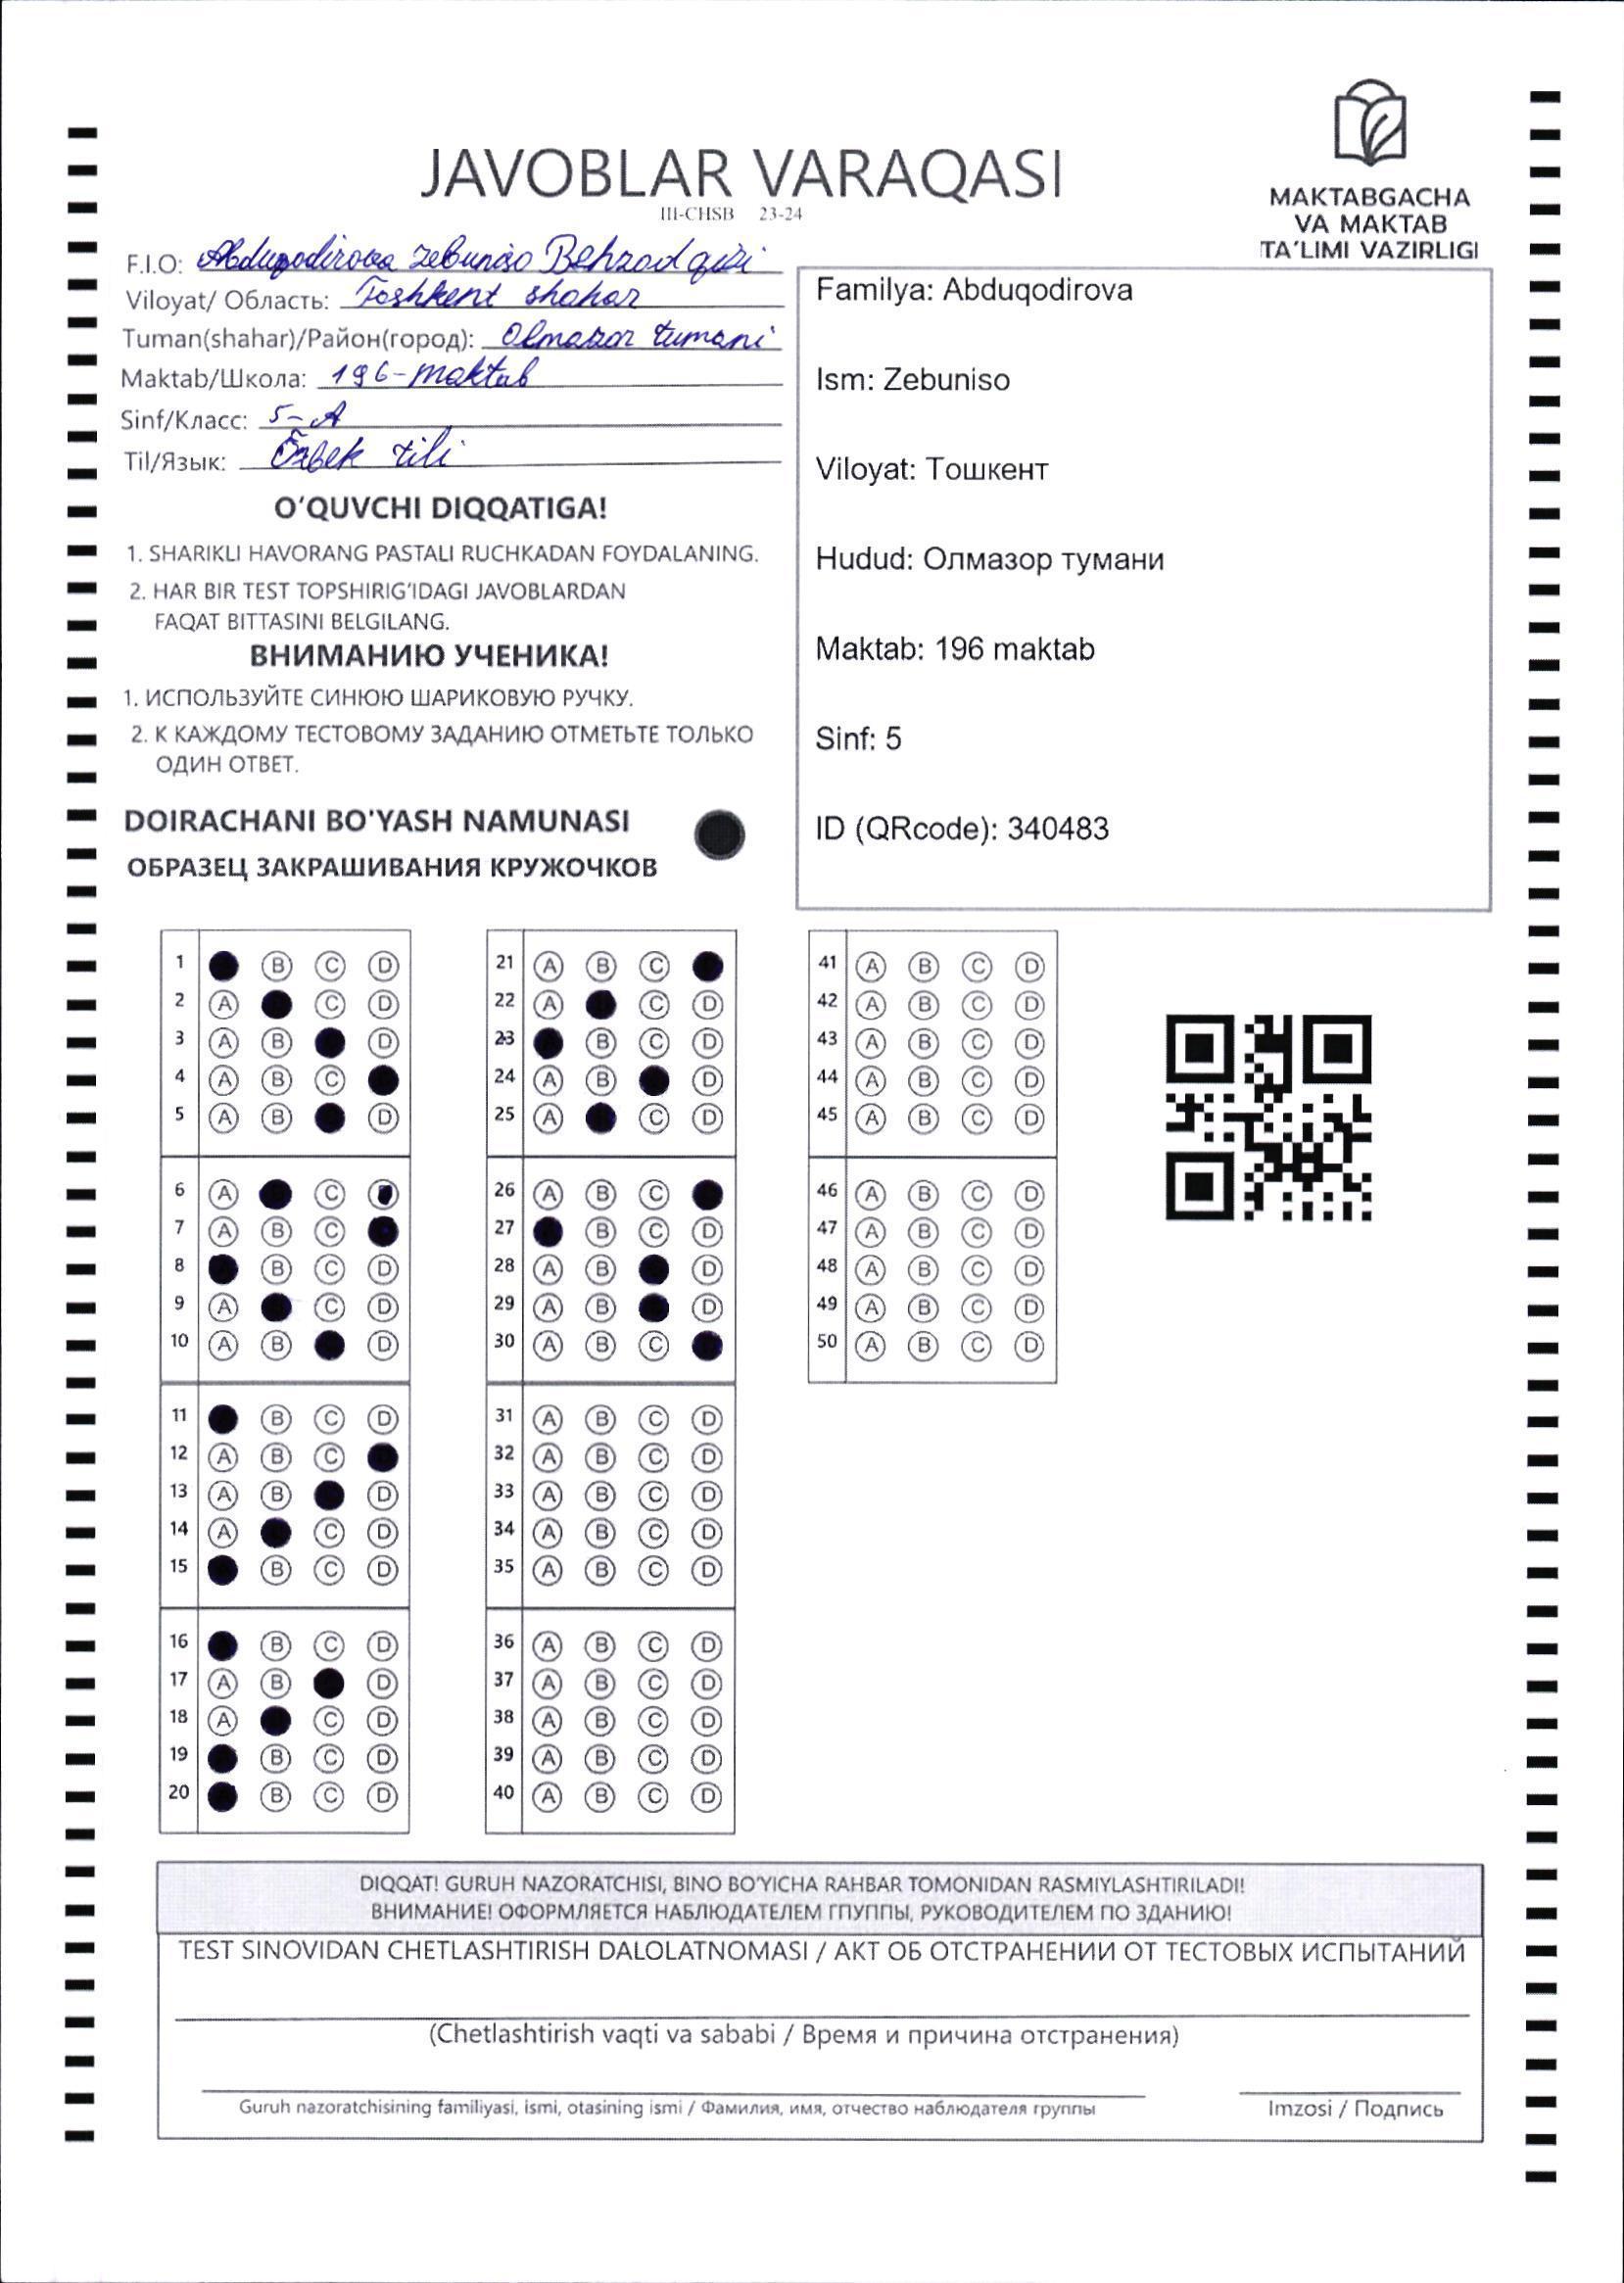 JAVOBLAR VARAQASI
III-CHSB 23-24
MAKTABGACHA
VA MAKTAB
TA'LIMI VAZIRLIGI
F.I.O: Abduqodirova Zebuniso Behzod qizi
Viloyat/ Область: Toshkent shahar
Tuman(shahar)/Район(город): Olmazor tumani
Maktab/Школа: 196-maktab
Sinf/Класс: 5-A
Til/Язык: Õzbek tili
Familya: Abduqodirova
Ism: Zebuniso
Viloyat: Тошкент
Hudud: Олмазор тумани
Maktab: 196 maktab
Sinf: 5
ID (QRcode): 340483
O'QUVCHI DIQQATIGA!
1. SHARIKLI HAVORANG PASTALI RUCHKADAN FOYDALANING.
2. HAR BIR TEST TOPSHIRIG'IDAGI JAVOBLARDAN
FAQAT BITTASINI BELGILANG.
ВНИМАНИЮ УЧЕНИКА!
1. ИСПОЛЬЗУЙТЕ СИНЮЮ ШАРИКОВУЮ РУЧКУ.
2. К КАЖДОМУ ТЕСТОВОМУ ЗАДАНИЮ ОТМЕТЬТЕ ТОЛЬКО
ОДИН ОТВЕТ.
DOIRACHANI BO'YASH NAMUNASI
ОБРАЗЕЦ ЗАКРАШИВАНИЯ КРУЖОЧКОВ
1 B C D
2 A C D
3 A B D
4 A B C
5 A B D
6 A C
7 A B C
8 B C D
9 A C D
10 A B D
11 B C D
12 A B C
13 A B D
14 A C D
15 B C D
16 B C D
17 A B D
18 A C D
19 B C D
20 B C D
21 A B C
22 A C D
23 B C D
24 A B D
25 A C D
26 A B C
27 B C D
28 A B D
29 A B D
30 A B C
31 A B C D
32 A B C D
33 A B C D
34 A B C D
35 A B C D
36 A B C D
37 A B C D
38 A B C D
39 A B C D
40 A B C D
41 A B C D
42 A B C D
43 A B C D
44 A B C D
45 A B C D
46 A B C D
47 A B C D
48 A B C D
49 A B C D
50 A B C D
DIQQAT! GURUH NAZORATCHISI, BINO BO'YICHA RAHBAR TOMONIDAN RASMIYLASHTIRILADI!
ВНИМАНИЕ! ОФОРМЛЯЕТСЯ НАБЛЮДАТЕЛЕМ ГПУППЫ, РУКОВОДИТЕЛЕМ ПО ЗДАНИЮ!
TEST SINOVIDAN CHETLASHTIRISH DALOLATNOMASI / АКТ ОБ ОТСТРАНЕНИИ ОТ ТЕСТОВЫХ ИСПЫТАНИЙ
(Chetlashtirish vaqti va sababi / Время и причина отстранения)
Guruh nazoratchisining familiyasi, ismi, otasining ismi / Фамилия, имя, отчество наблюдателя группы
Imzosi / Подпись